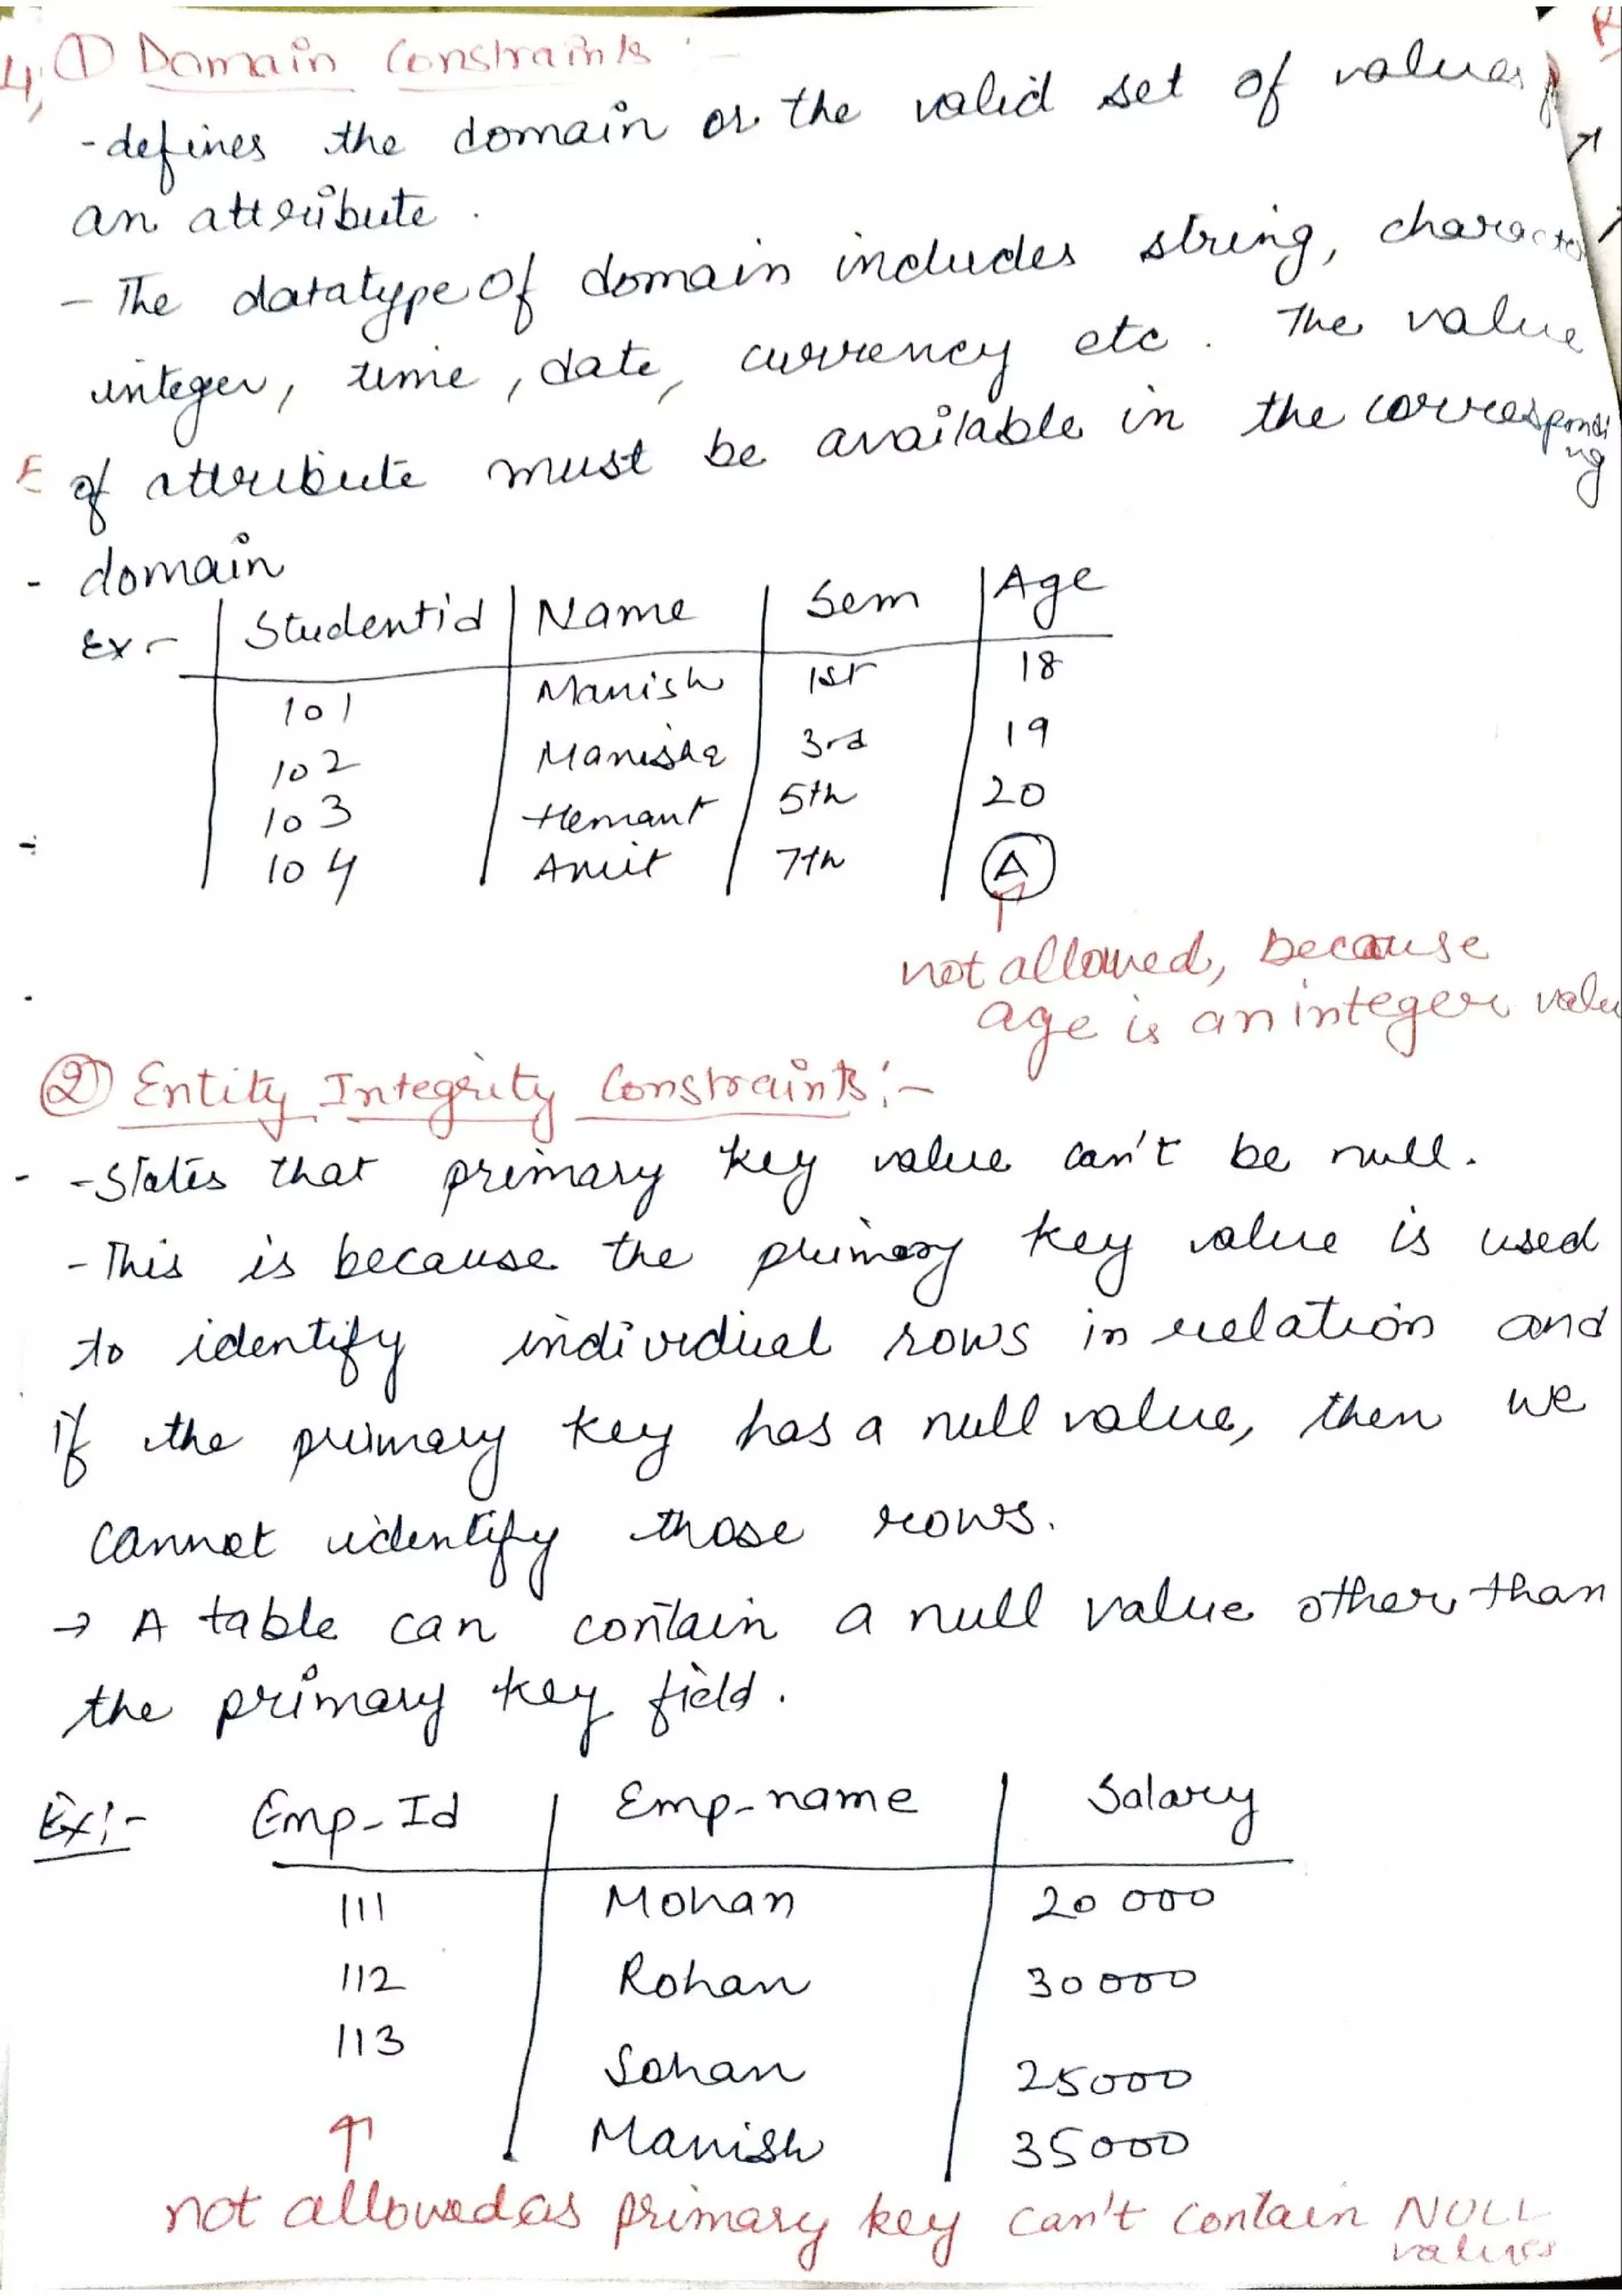 4, ① Domain Constraints :-
- defines the domain or the valid set of values
an attribute .
- The datatype of domain includes string, character
integer, time, date, currency etc. The value
of attribute must be available in the corresponding
domain
Ex- | Studentid | Name | Sem | Age
101 Manish 1st 18
102 Manisha 3rd 19
103 Hemant 5th 20
104 Amit 7th A
not allowed, because
age is an integer value
② Entity Integrity Constraints :-
- States that primary key value can't be null.
- This is because the primary key value is used
to identify individual rows in relation and
if the primary key has a null value, then we
cannot identify those rows.
→ A table can contain a null value other than
the primary key field.
Ex:- Emp-Id | Emp-name | Salary
111 Mohan 20000
112 Rohan 30000
113 Sohan 25000
↑ Manish 35000
not allowed as primary key can't contain NULL
values